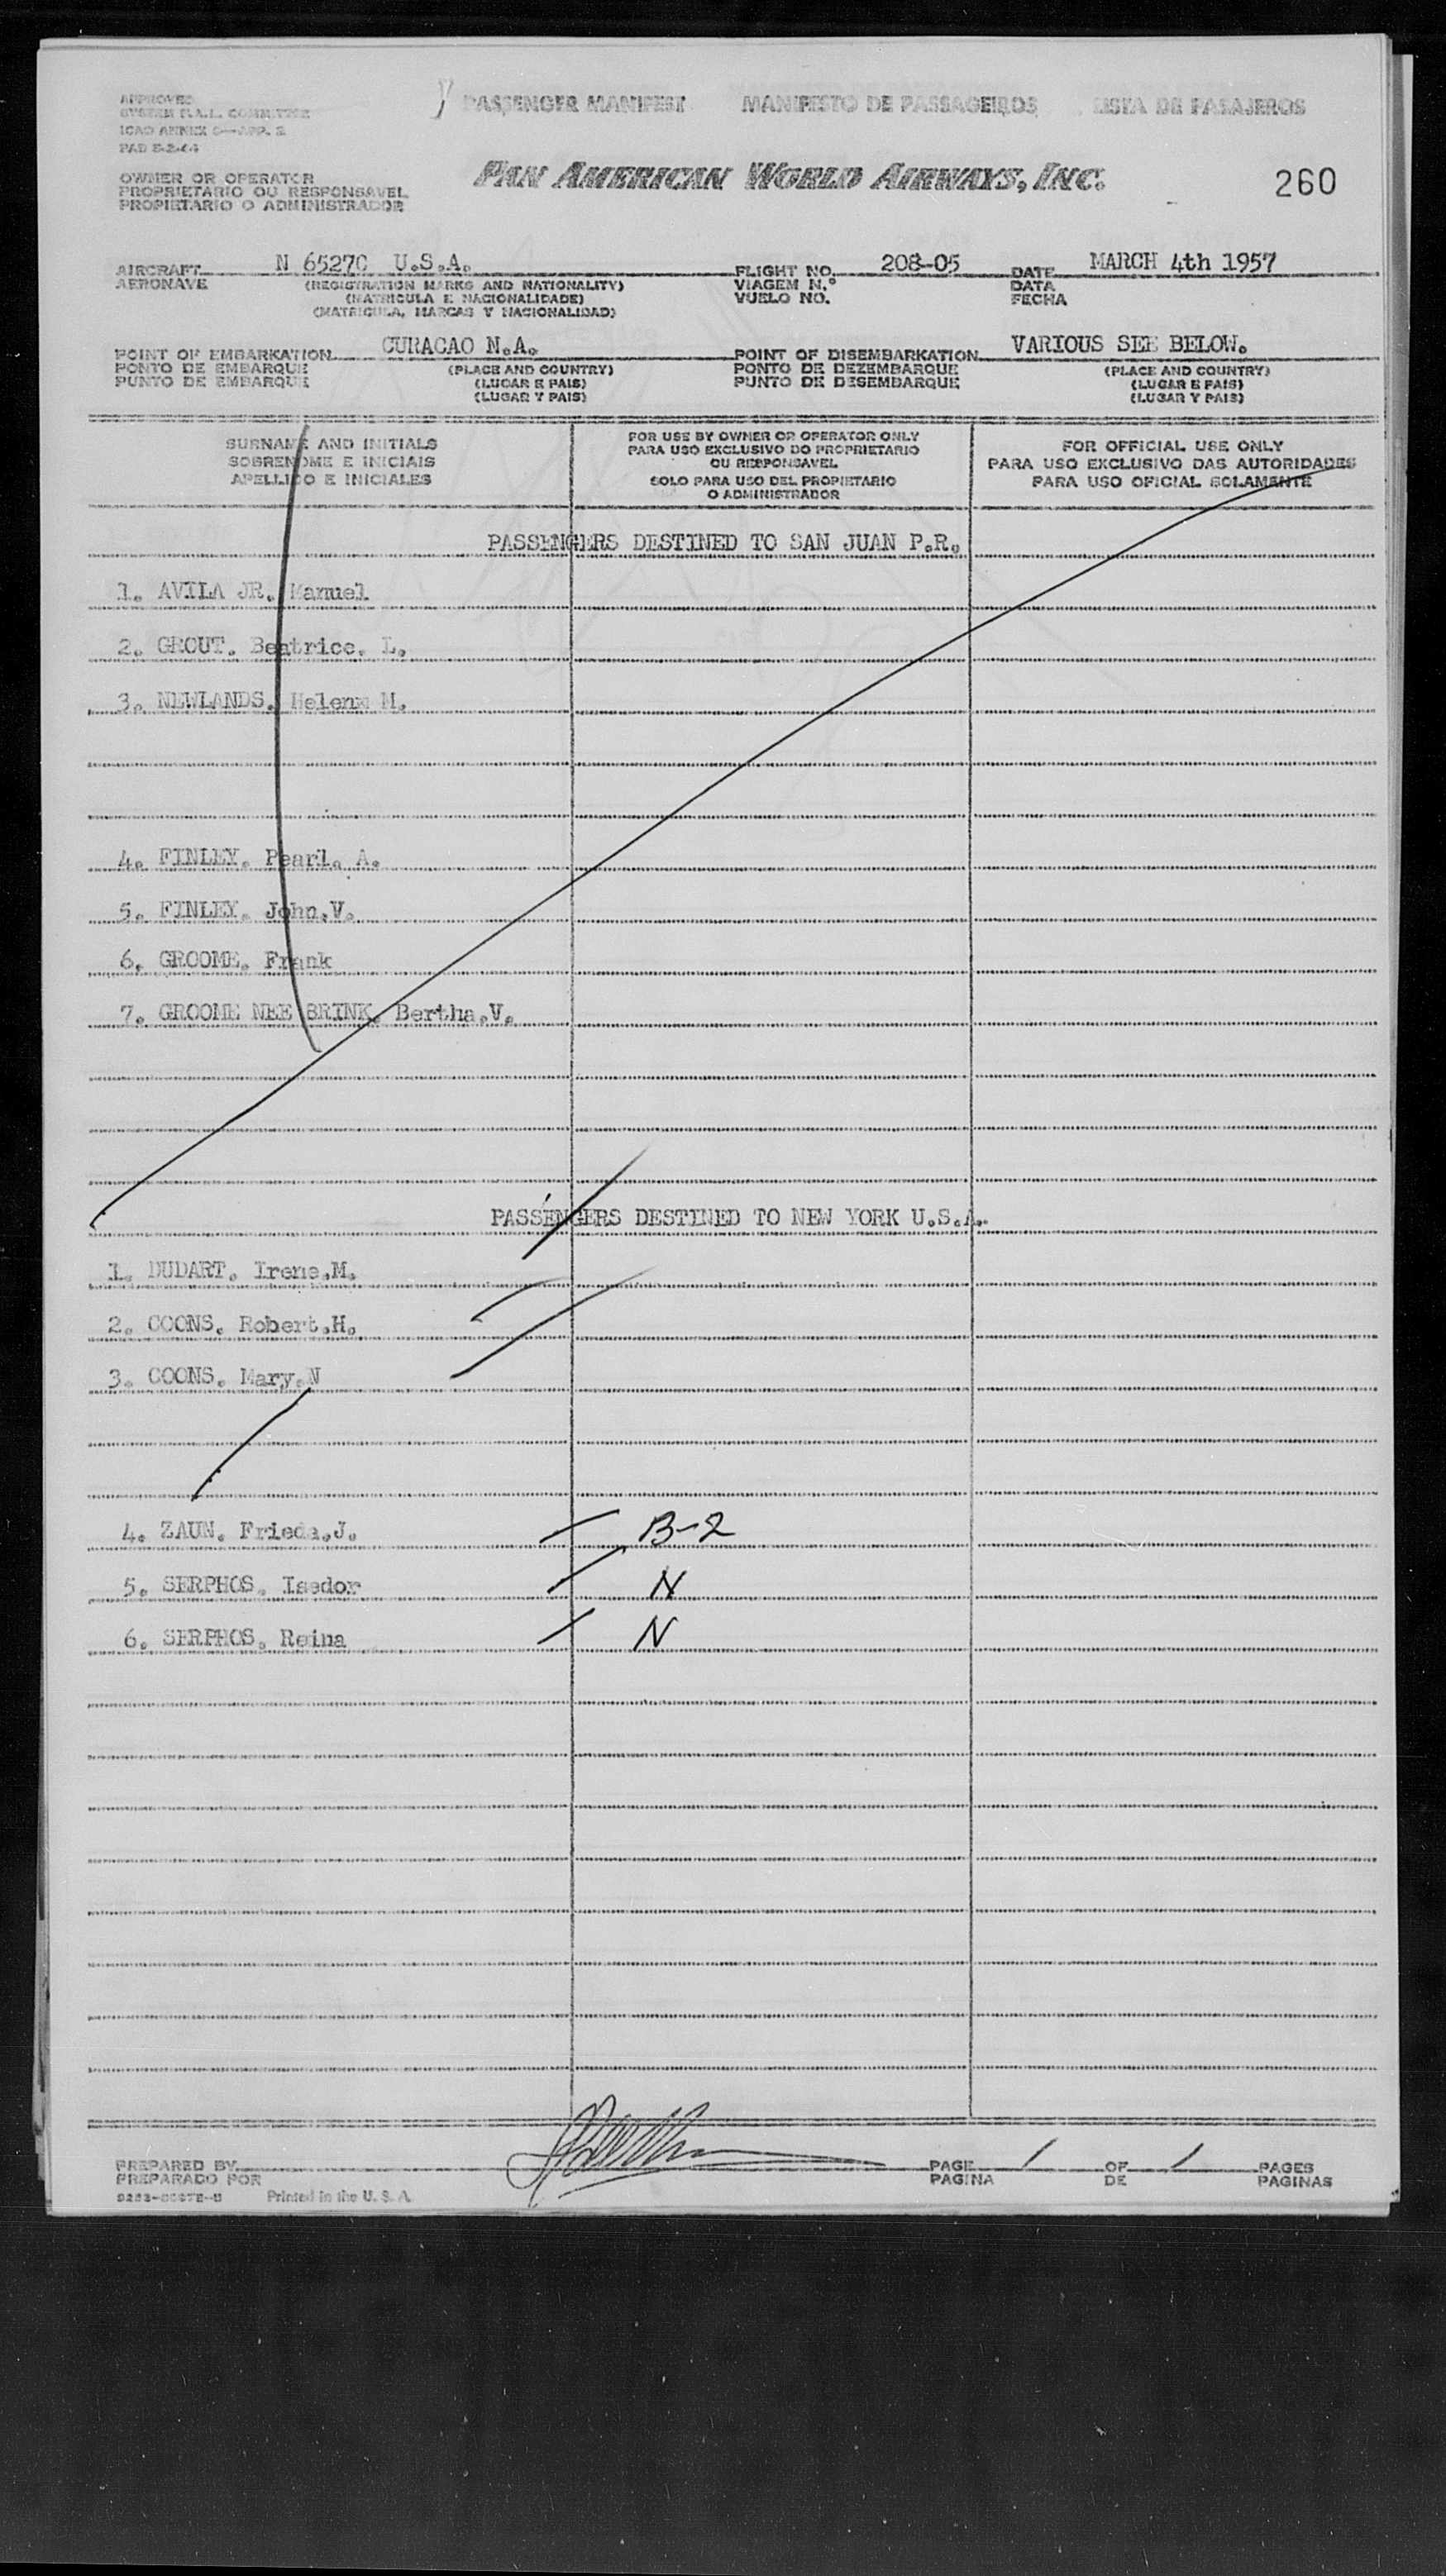 APPROVED
SYSTEM F.A.L. COMMITTEE
ICAO ANNEX 9—APP. 2
PAD 5-2-44
PASSENGER MANIFEST MANIFESTO DE PASSAGEIROS LISTA DE PASAJEROS
OWNER OR OPERATOR
PROPRIETARIO OU RESPONSAVEL
PROPIETARIO O ADMINISTRADOR
PAN AMERICAN WORLD AIRWAYS, INC.
260
AIRCRAFT N 6527C U.S.A. FLIGHT NO. 208-05 DATE MARCH 4th 1957
AERONAVE (REGISTRATION MARKS AND NATIONALITY) VIAGEM N.° DATA
(MATRICULA E NACIONALIDADE) VUELO NO. FECHA
(MATRICULA, MARCAS Y NACIONALIDAD)
POINT OF EMBARKATION CURACAO N.A. POINT OF DISEMBARKATION VARIOUS SEE BELOW.
PONTO DE EMBARQUE (PLACE AND COUNTRY) PONTO DE DEZEMBARQUE (PLACE AND COUNTRY)
PUNTO DE EMBARQUE (LUGAR E PAIS) PUNTO DE DESEMBARQUE (LUGAR E PAIS)
(LUGAR Y PAIS) (LUGAR Y PAIS)
SURNAME AND INITIALS
SOBRENOME E INICIAIS
APELLIDO E INICIALES
FOR USE BY OWNER OR OPERATOR ONLY
PARA USO EXCLUSIVO DO PROPRIETARIO
OU RESPONSAVEL
SOLO PARA USO DEL PROPIETARIO
O ADMINISTRADOR
FOR OFFICIAL USE ONLY
PARA USO EXCLUSIVO DAS AUTORIDADES
PARA USO OFICIAL SOLAMENTE
PASSENGERS DESTINED TO SAN JUAN P.R.
1. AVILA JR. Manuel
2. GROUT. Beatrice. L.
3. NEWLANDS. Helena M.
4. FINLEY. Pearl. A.
5. FINLEY. John.V.
6. GROOME. Frank
7. GROOME NEE BRINK. Bertha.V.
PASSENGERS DESTINED TO NEW YORK U.S.A.
1. DUDART. Irene.M.
2. COONS. Robert.H.
3. COONS. Mary.N
4. ZAUN. Frieda.J. B-2
5. SERPHOS. Isedor N
6. SERPHOS. Reina N
PREPARED BY PAGE 1 OF 1 PAGES
PREPARADO POR PAGINA DE PAGINAS
Printed in the U. S. A.